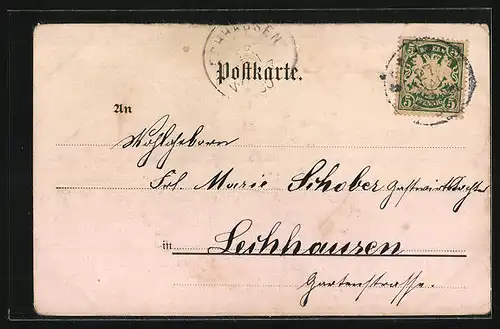 CHHAUSEN
Postkarte.
BAYERN
5 PFENNIG 5
An
Wohlgeboren
Frl. Marie Schober Gastwirtstochter
in Lechhausen
Gartenstrasse.